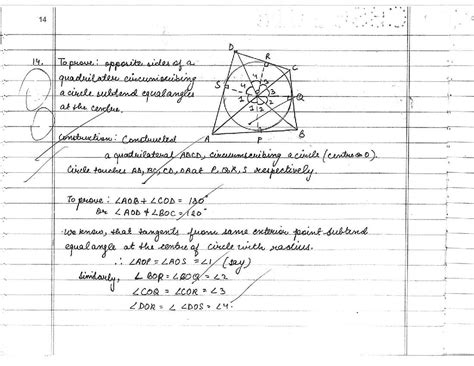 14
14. To prove: opposite sides of a
quadrilateral circumscribing
a circle subtend equal angles
at the centre.
D
R
C
S
Q
A
P
B
4 4
3
3
2
1
1 2
Construction: Constructed
a quadrilateral ABCD, circumscribing a circle (centre = O).
Circle touches AB, BC, CD, DA at P, Q, R, S respectively.
To prove: ∠AOB + ∠COD = 180°
Or ∠AOD + ∠BOC = 120°
We know, that tangents from same exterior point subtend
equal angle at the centre of circle with radius.
∴ ∠AOP = ∠AOS = ∠1 (say)
Similarly, ∠BOP = ∠BOQ = ∠2
∠COQ = ∠COR = ∠3
∠DOR = ∠ ∠DOS = ∠4